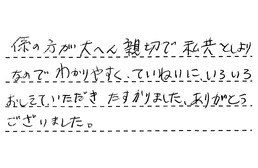 係の方が大へん親切で私共としより
なのでわかりやすく、ていねいに、いろいろ
おしえていただきたすかりました、ありがとう
ございました。